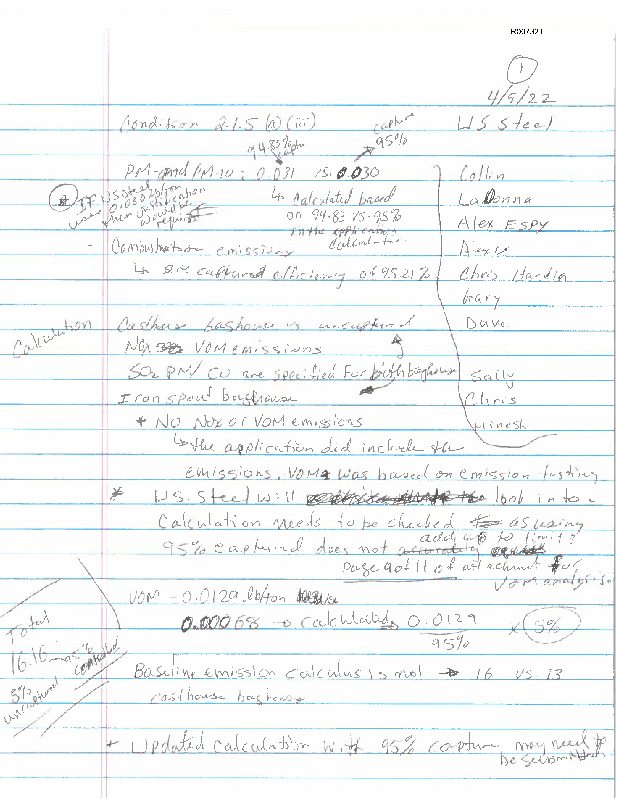 R007321
1
4/9/22
Condition 2.1.5 (a)(iii)
capture
95%
US Steel
94.83%
PM and PM-10: 0.031 vs. 0.030
* If US Steel
use 0.030 lb/ton
then justification
would be
required
↳ Calculated based
on 94.83 vs. 95%
in the application
calculation.
- Combustion emissions
↳ are captured efficiency of 95.21%
Collin
LaDonna
Alex Espy
Alexis
Chris Hardin
Gary
Dave
Sally
Chris
Minesh
Calculation
Casthouse baghouse vs uncaptured
NOx VOM emissions
SO2 PM/CO are specified for both baghouse
Iron spout baghouse
* No NOx or VOM emissions
↳ the application did include the
emissions. VOM was based on emission testing
* U.S. Steel will look into
Calculation needs to be checked as using
add up to limit?
95% captured does not
page 9 of 11 of attachment for
VOM analysis
VOM - 0.0129 lb/ton
0.00068 → calculated 0.0129 x 5%
95%
Total
16.16
5%
uncaptured
Baseline emission calculus is not → 16 vs 13
casthouse baghouse
* Updated calculation with 95% capture may need to
be